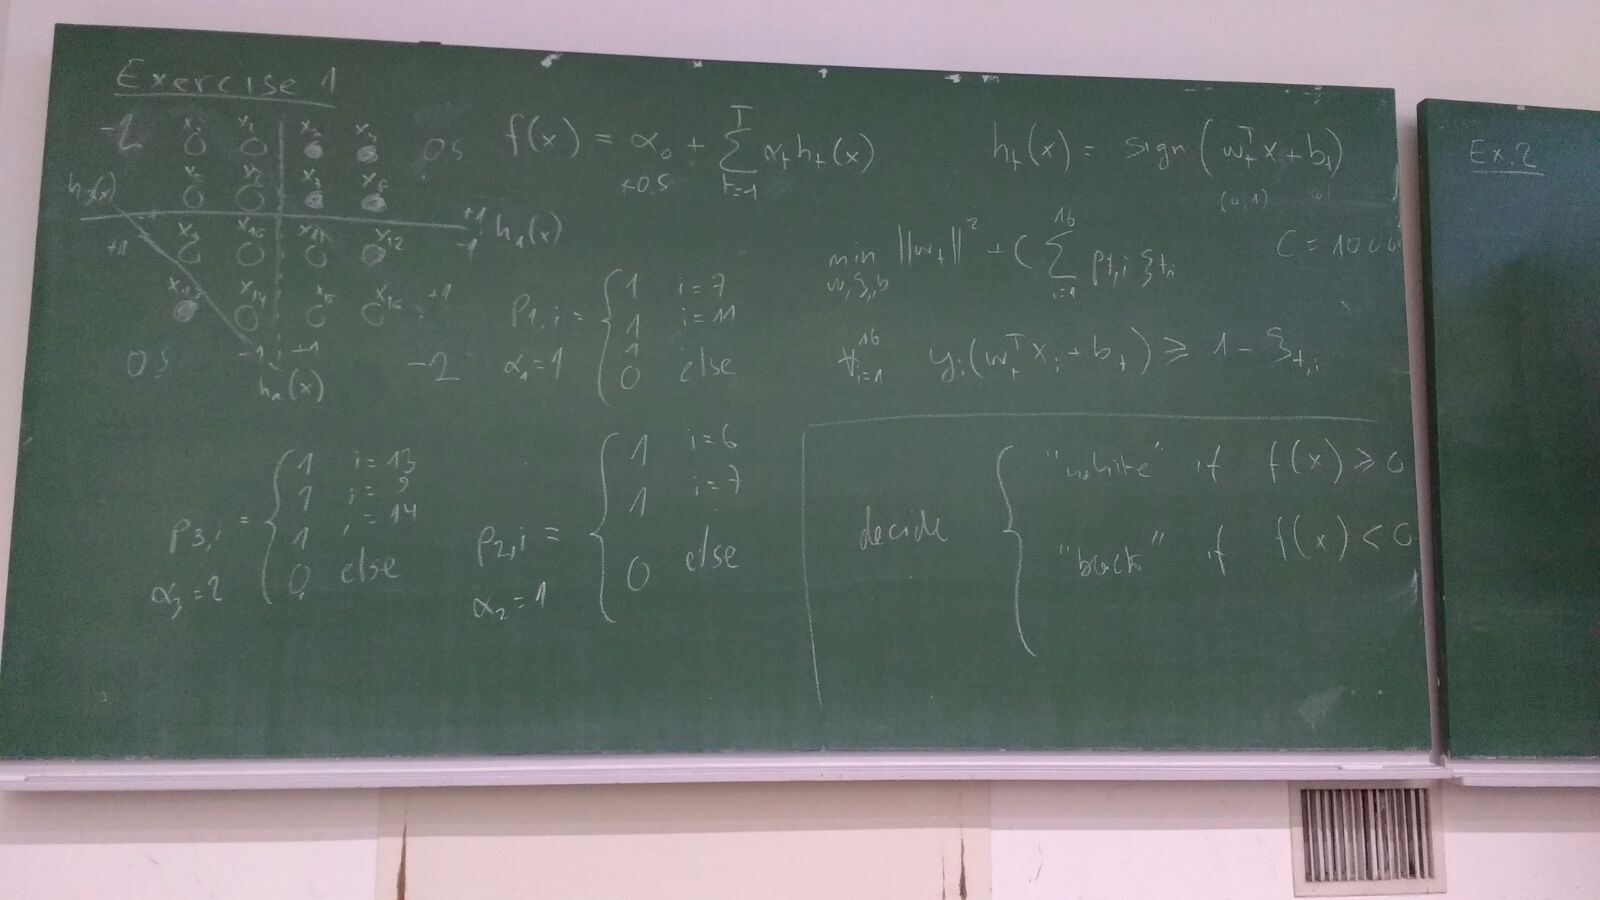 Exercise 1
-2 x₂ x₃ 0.5
h₃(x)
+1 h₁(x)
+1 -1
x₁₁ x₁₂
x₁₄ x₁₅ x₁₆ +1
0.5 -1 +1 -2
f(x) = α₀ + Σ_{t=1}^{T} α_t h_t(x)
+0.5
h_t(x) = sign(w_t^T x + b_t)
(0,1)
min_{w,ξ,b} ||w_t||² + C Σ_{i=1}^{16} p_{t,i} ξ_{t,i} C = 1000
∀_{i=1}^{16} y_i(w_t^T x_i + b_t) ≥ 1 - ξ_{t,i}
p_{1,i} = { 1 i=7
1 i=11
1
0 else
α₁=1
p_{3,i} = { 1 i=13
1 i=9
1 i=14
0 else
α₃=2
p_{2,i} = { 1 i=6
1 i=7
0 else
α₂=1
decide { "white" if f(x) ≥ 0
"back" if f(x) < 0
Ex.2